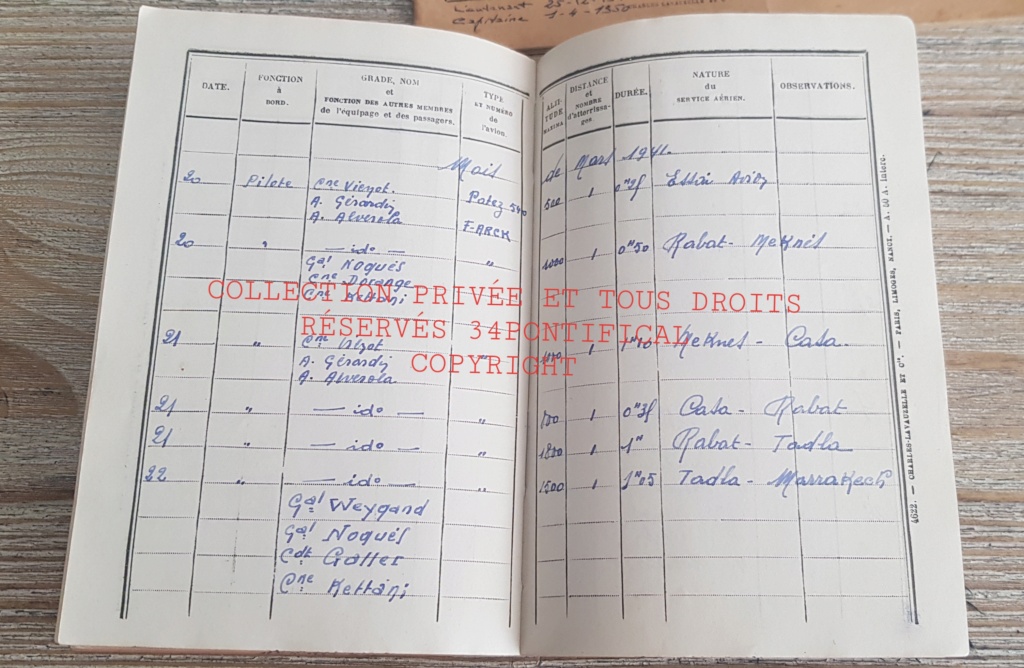 Lieutenant 25-12-
Capitaine 1-4-1930
DATE.
FONCTION
à
BORD.
GRADE, NOM
et
FONCTION DES AUTRES MEMBRES
de l'équipage et des passagers.
TYPE
ET NUMÉRO
de
l'avion.
ALTI-
TUDE
MAXIMA
DISTANCE
et
NOMBRE
d'atterrissa-
ges
DURÉE.
NATURE
du
SERVICE AÉRIEN.
OBSERVATIONS.
Mois de Mars 1941.
20 Pilote Cne Vizot. Potez 540 500 1 0h25 Essai Avion
A. Gérardin
A. Alverola F-ARCK
20 " — ido — " 1000 1 0h50 Rabat - Meknès
Gal Noguès
Cne Dorange
Cne Kettani
COLLECTION PRIVÉE ET TOUS DROITS
RÉSERVÉS 34PONTIFICAL
COPYRIGHT
21 " Cne Vizot " 1 1h10 Meknes - Casa.
A. Gérardin
A. Alverola
21 " — ido — " 1 0h35 Casa - Rabat
21 " — ido — " 1800 1 1h Rabat - Tadla
22 " — ido — " 1500 1 1h05 Tadla - Marrakech
Gal Weygand
Gal Noguès
Cdt Gasser
Cne Kettani
4622. — CHARLES-LAVAUZELLE ET Cie. — PARIS, LIMOGES, NANCY. — A. 60 A. interc.